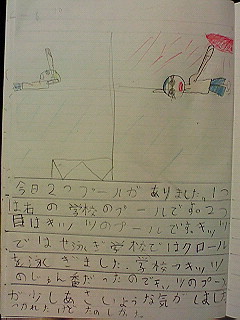 今日2つプールがありました。1つ
は右の学校のプールです。2つ
目はキッツのプールです。キッツ
では せ泳ぎ学校ではクロール
を泳ぎました。学校→キッツ
のじゅん番だったのでキッツのプール
が少しあさいような気がしました
つかれたけどたのしかった。